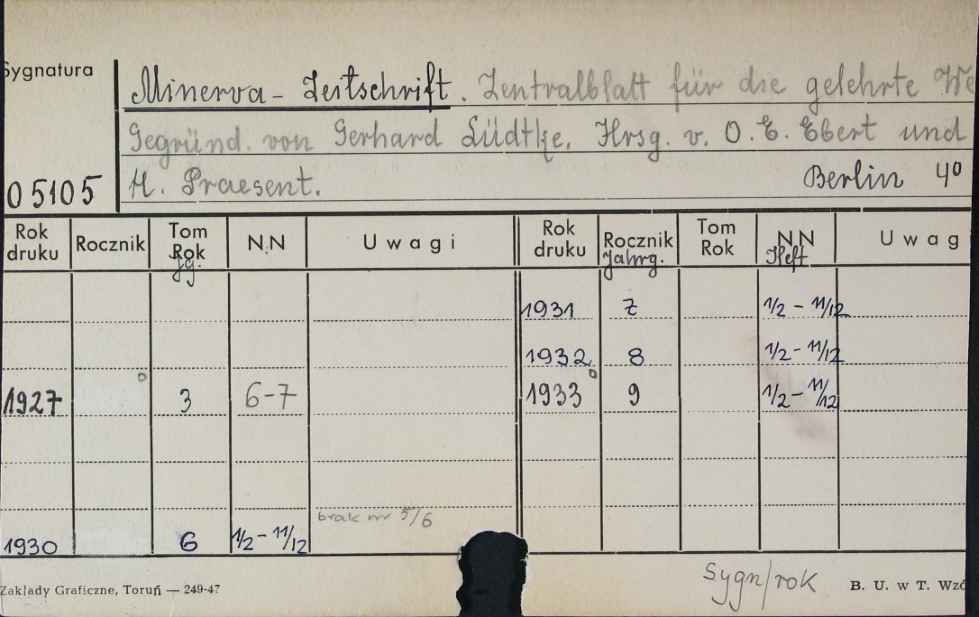 Sygnatura
Minerva - Zeitschrift. Zentralblatt für die gelehrte We
Gegründ. von Gerhard Lüdtke, Hrsg. v. O. E. Ebert und
05105 H. Praesent. Berlin 4º
Rok druku Rocznik Tom Rok Jg. N.N Uwagi Rok druku Rocznik Jahrg. Tom Rok N.N Heft Uwag
1931 7 1/2 - 11/12
1932 8 1/2 - 11/12
1927 3 6-7 1933 9 1/2 - 11/12
brak nr 5/6
1930 6 1/2 - 11/12
Sygn/rok
Zakłady Graficzne, Toruń — 249-47 B. U. w T. Wzó